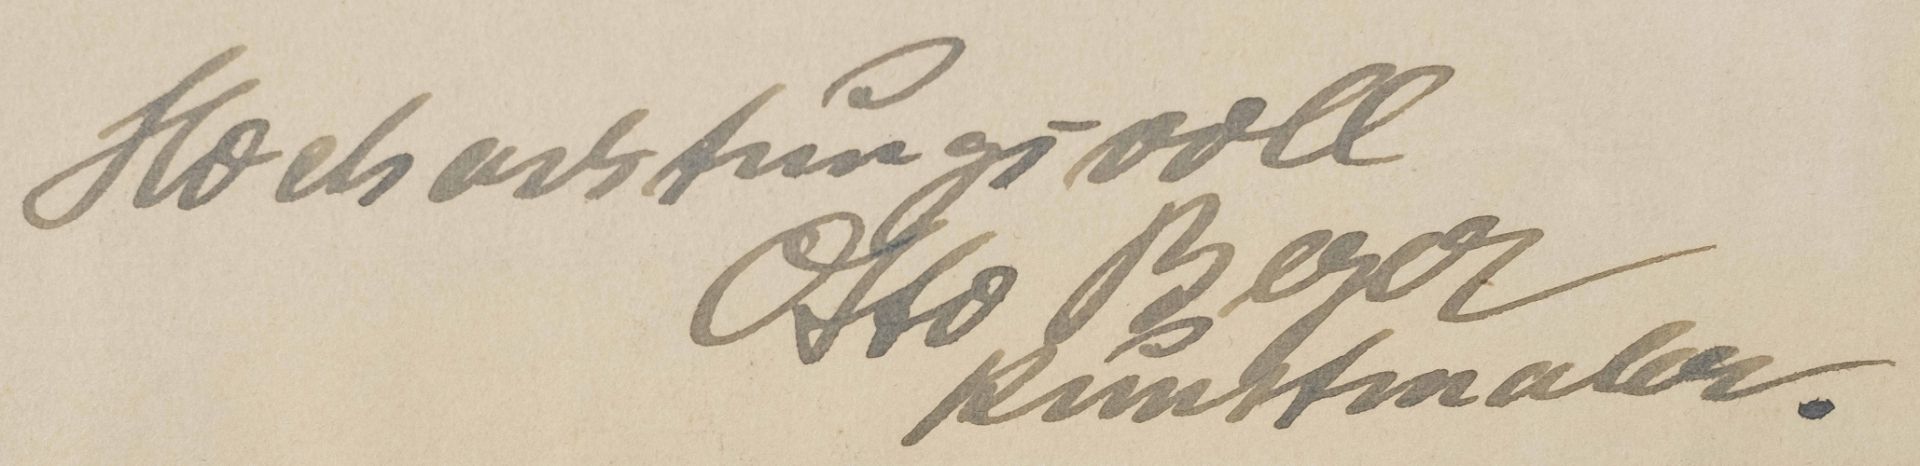 Hochachtungsvoll
Otto Beyer
Kunstmaler.